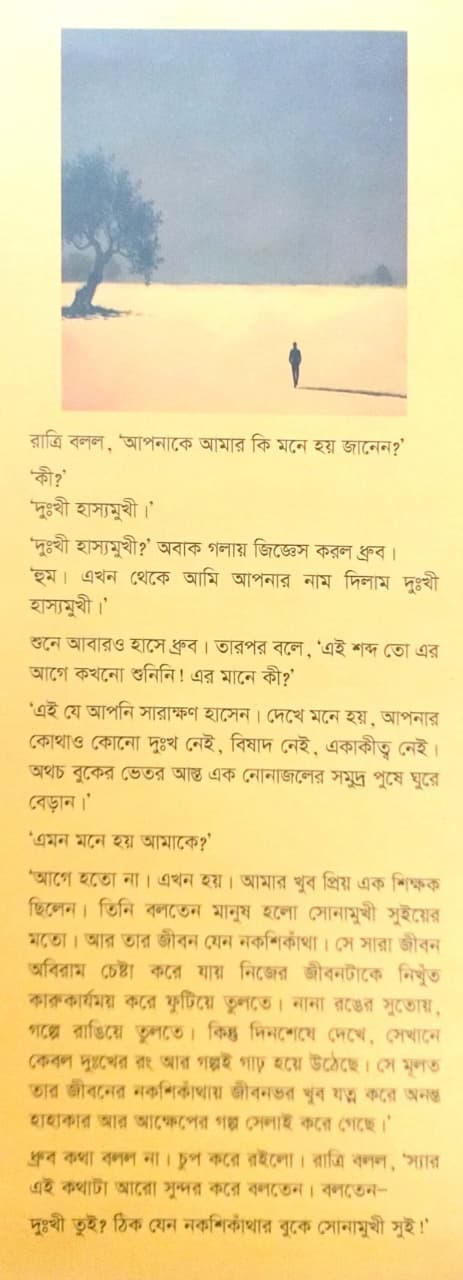 রাত্রি বলল, ‘আপনাকে আমার কি মনে হয় জানেন?’
‘কী?’
‘দুঃখী হাস্যমুখী।’
‘দুঃখী হাস্যমুখী?’ অবাক গলায় জিজ্ঞেস করল ধ্রুব।
‘হুম। এখন থেকে আমি আপনার নাম দিলাম দুঃখী
হাস্যমুখী।’
শুনে আবারও হাসে ধ্রুব। তারপর বলে, ‘এই শব্দ তো এর
আগে কখনো শুনিনি! এর মানে কী?’
‘এই যে আপনি সারাক্ষণ হাসেন। দেখে মনে হয়, আপনার
কোথাও কোনো দুঃখ নেই, বিষাদ নেই, একাকীত্ব নেই।
অথচ বুকের ভেতর আস্ত এক নোনাজলের সমুদ্র পুষে ঘুরে
বেড়ান।’
‘এমন মনে হয় আমাকে?’
‘আগে হতো না। এখন হয়। আমার খুব প্রিয় এক শিক্ষক
ছিলেন। তিনি বলতেন মানুষ হলো সোনামুখী সুইয়ের
মতো। আর তার জীবন যেন নকশিকাঁথা। সে সারা জীবন
অবিরাম চেষ্টা করে যায় নিজের জীবনটাকে নিখুঁত
কারুকার্যময় করে ফুটিয়ে তুলতে। নানা রঙের সুতোয়,
গল্পে রাঙিয়ে তুলতে। কিন্তু দিনশেষে দেখে, সেখানে
কেবল দুঃখের রং আর গল্পই গাঢ় হয়ে উঠেছে। সে মূলত
তার জীবনের নকশিকাঁথায় জীবনভর খুব যত্ন করে অনন্ত
হাহাকার আর আক্ষেপের গল্প সেলাই করে গেছে।’
ধ্রুব কথা বলল না। চুপ করে রইলো। রাত্রি বলল, ‘স্যার
এই কথাটা আরো সুন্দর করে বলতেন। বলতেন–
দুঃখী তুই? ঠিক যেন নকশিকাঁথার বুকে সোনামুখী সুই!’